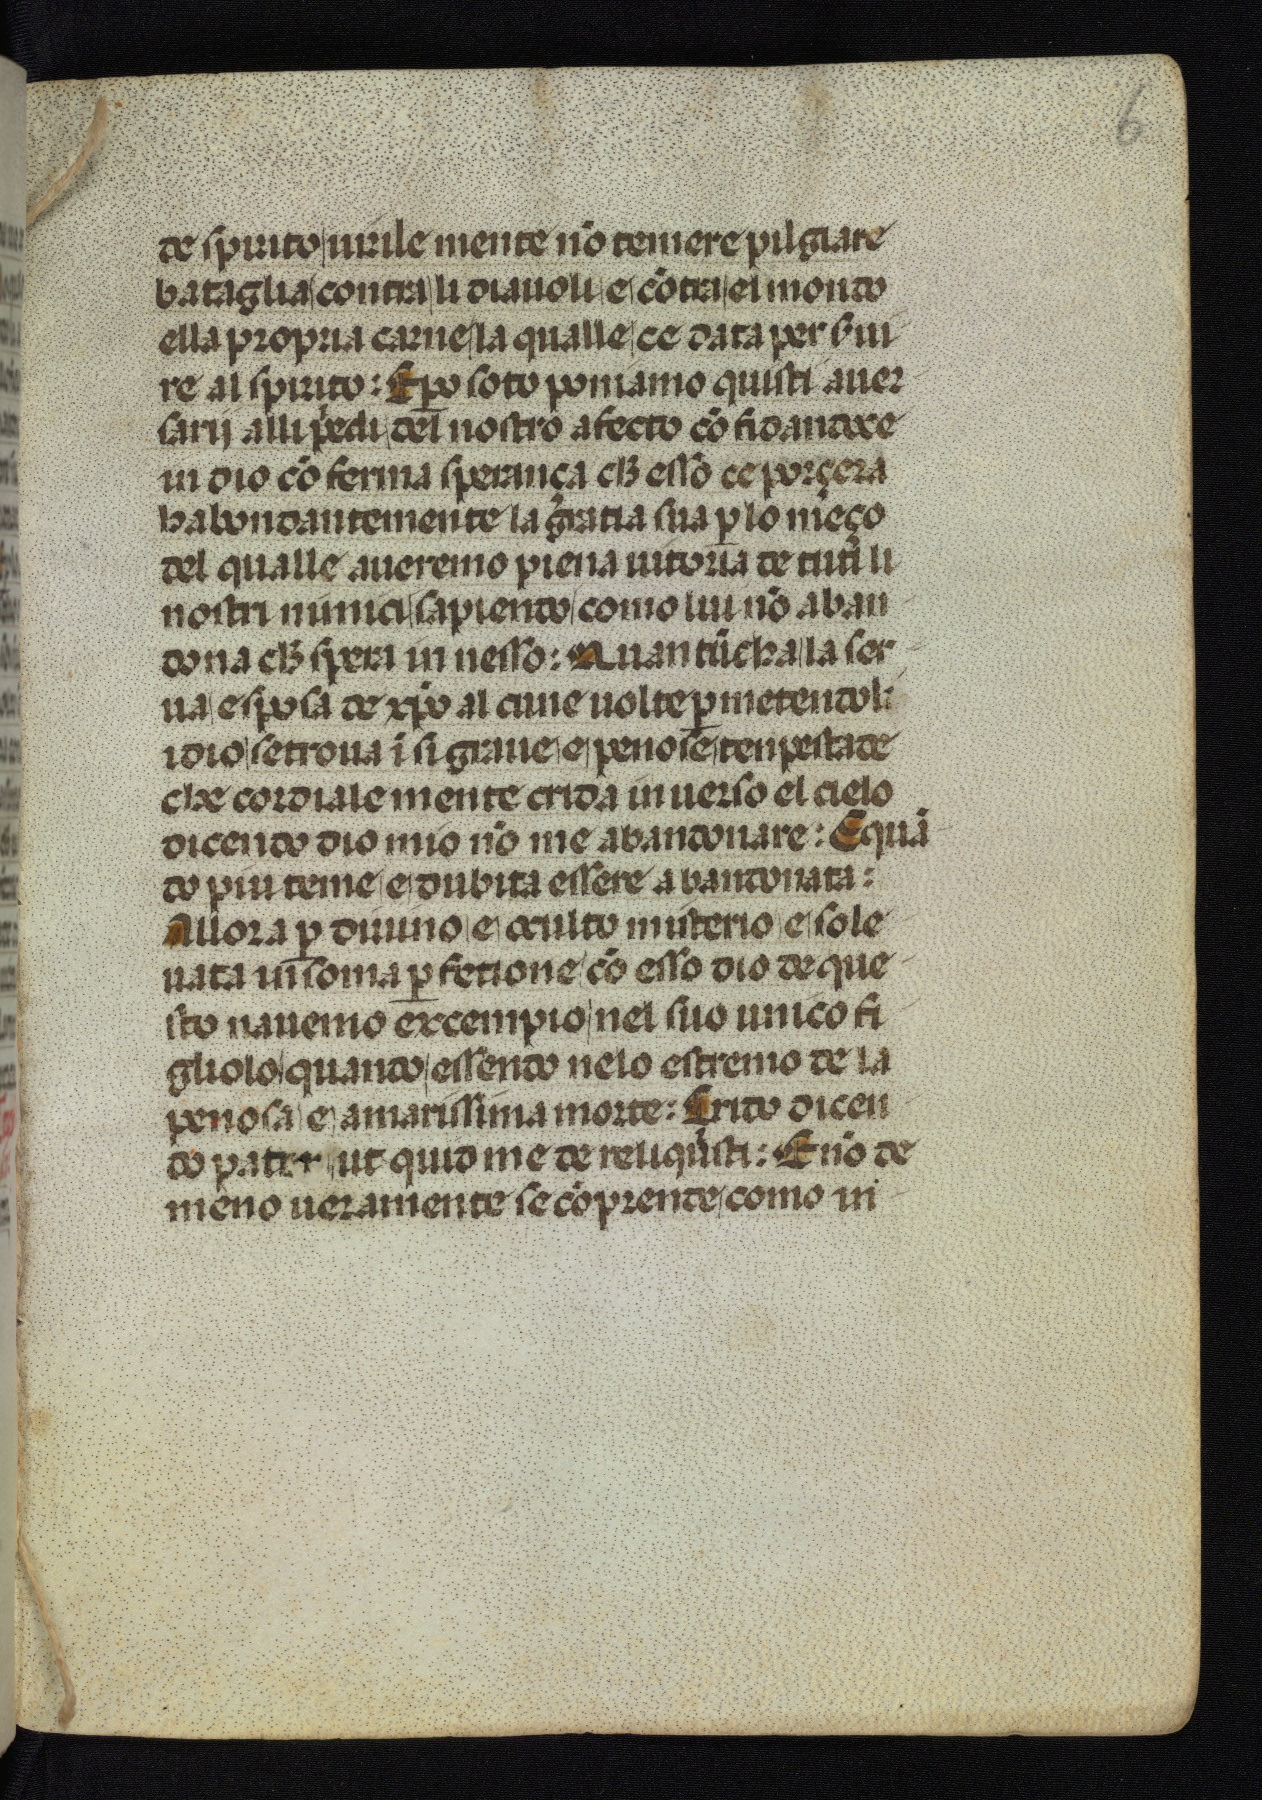 6
de spirito uirile mente nō temere pilgiare
bataglia contra li diauoli e cōtra el mondo
ella propria carne la qualle ce data per ẜui
re al spirito : E ꝑo soto poniamo quisti auer
sarij alli pedi del nostro afecto cō fidandoce
in dio cō ferma sperança cħ esso ce porçera
habondantemente la gratia sua ꝑ lo meço
del qualle aueremo piena uitoria de tuti li
nostri nimici sapiendo como lui nō aban
dona cħ speri in nesso : Quantūcha la ser
ua e sposa de xp̄o al cune uolte ꝑmetendoli
idio se troua ī si graue e penose tenpestade
che cordiale mente crida in uerso el cielo
dicendo dio mio nō me abandonare : E quā
do piu teme e dubita essere abandonata :
Allora ꝑ diuino e oculto misterio e sole
uata in soma ꝑfetione cō esso dio de que
sto nauemo excempio nel suo unico fi
gliolo quando essendo nelo estremo de la
penosa e amarissima morte : Crido dicen
do pater ut quid me de reliqu̇sti : E nō de
meno ueramente se cōprende como in